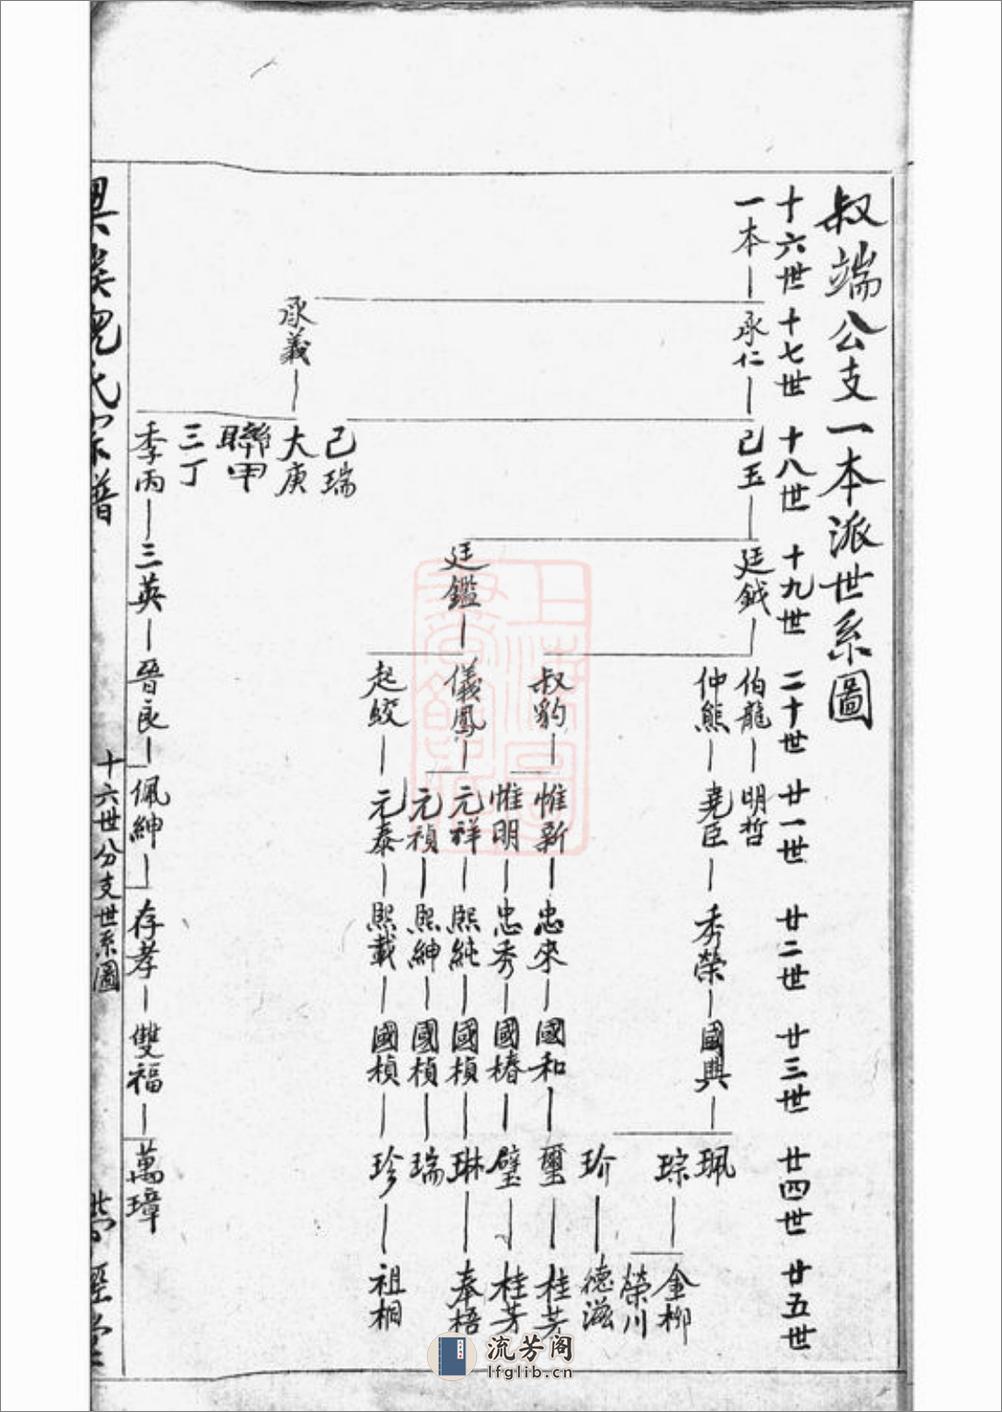 叔端公支一本派世系圖
十六世 十七世 十八世 十九世 二十世 廿一世 廿二世 廿三世 廿四世 廿五世
一本 承仁 己玉 廷鉞 伯龍 明哲
仲熊 堯臣 秀榮 國興 珮
琮 金柳
榮川
玠 德滋
叔豹 惟新 忠來 國和 璽 桂芳
惟明 忠秀 國椿 璧 桂芳
廷鑑 儀鳳 元祥 熙純 國楨 琳 奉梧
元禎 熙紳 國楨 瑞
起蛟 元泰 熙載 國楨 珍 祖桐
己瑞
承義 大庚
聯甲
三丁
季丙 三英 晉良 佩紳 存孝 雙福 萬璋
氏宗譜 十六世分支世系圖 經堂
上海圖書館藏書
流芳阁
lfglib.cn